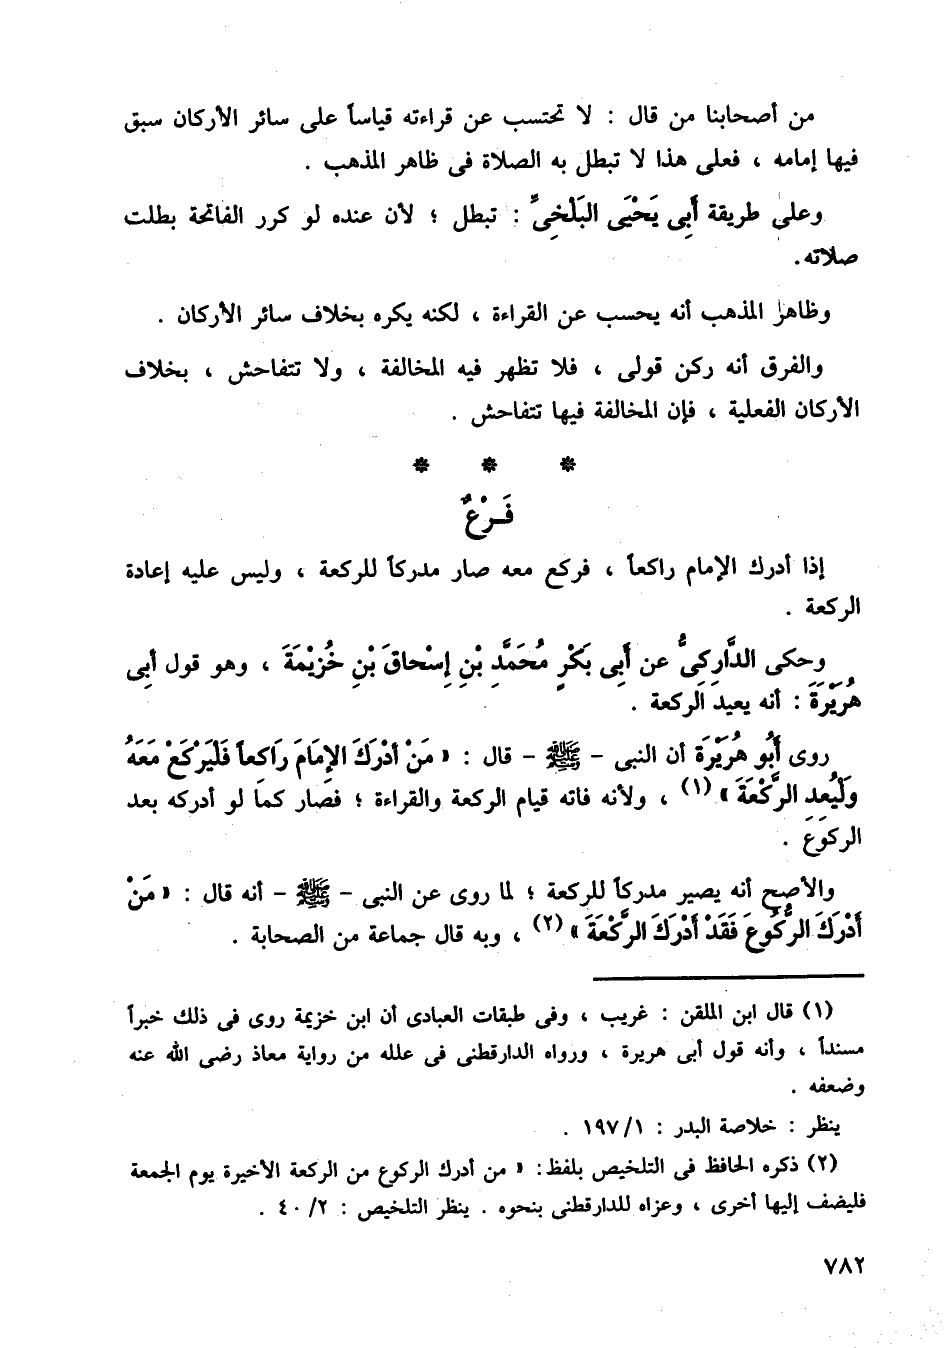 من أصحابنا من قال : لا تحتسب عن قراءته قياساً على سائر الأركان سبق
فيها إمامه ، فعلى هذا لا تبطل به الصلاة فى ظاهر المذهب .
وعلى طريقة أَبِى يَحْيَى البَلْخِىِّ : تبطل ؛ لأن عنده لو كرر الفاتحة بطلت
صلاته.
وظاهر المذهب أنه يحسب عن القراءة ، لكنه يكره بخلاف سائر الأركان .
والفرق أنه ركن قولى ، فلا تظهر فيه المخالفة ، ولا تتفاحش ، بخلاف
الأركان الفعلية ، فإن المخالفة فيها تتفاحش .
* * *
فَـرْعٌ
إذا أدرك الإمام راكعاً ، فركع معه صار مدركاً للركعة ، وليس عليه إعادة
الركعة .
وحكى الدَّارِكِىُّ عن أَبِى بَكْرٍ مُحَمَّدِ بْنِ إِسْحاقَ بْنِ خُزَيْمَةَ ، وهو قول أبِى
هُرَيْرَةَ : أنه يعيد الركعة .
روى أَبُو هُرَيْرَةَ أن النبى - ﷺ - قال : « مَنْ أدْرَكَ الإِمَامَ رَاكعاً فَلْيَرْكَعْ مَعَهُ
وَلْيُعِد الرَّكْعَةَ » (١) ، ولأنه فاته قيام الركعة والقراءة ؛ فصار كما لو أدركه بعد
الركوع .
والأصح أنه يصير مدركاً للركعة ؛ لما روى عن النبى - ﷺ - أنه قال : « مَنْ
أَدْرَكَ الرُّكُوعَ فَقَدْ أَدْرَكَ الرَّكْعَةَ » (٢) ، وبه قال جماعة من الصحابة .
(١) قال ابن الملقن : غريب ، وفى طبقات العبادى أن ابن خزيمة روى فى ذلك خبراً
مسنداً ، وأنه قول أبى هريرة ، ورواه الدارقطنى فى علله من رواية معاذ رضى الله عنه
وضعفه .
ينظر : خلاصة البدر : ١/ ١٩٧ .
(٢) ذكره الحافظ فى التلخيص بلفظ: « من أدرك الركوع من الركعة الأخيرة يوم الجمعة
فليضف إليها أخرى ، وعزاه للدارقطنى بنحوه . ينظر التلخيص : ٢/ ٤٠ .
٧٨٢